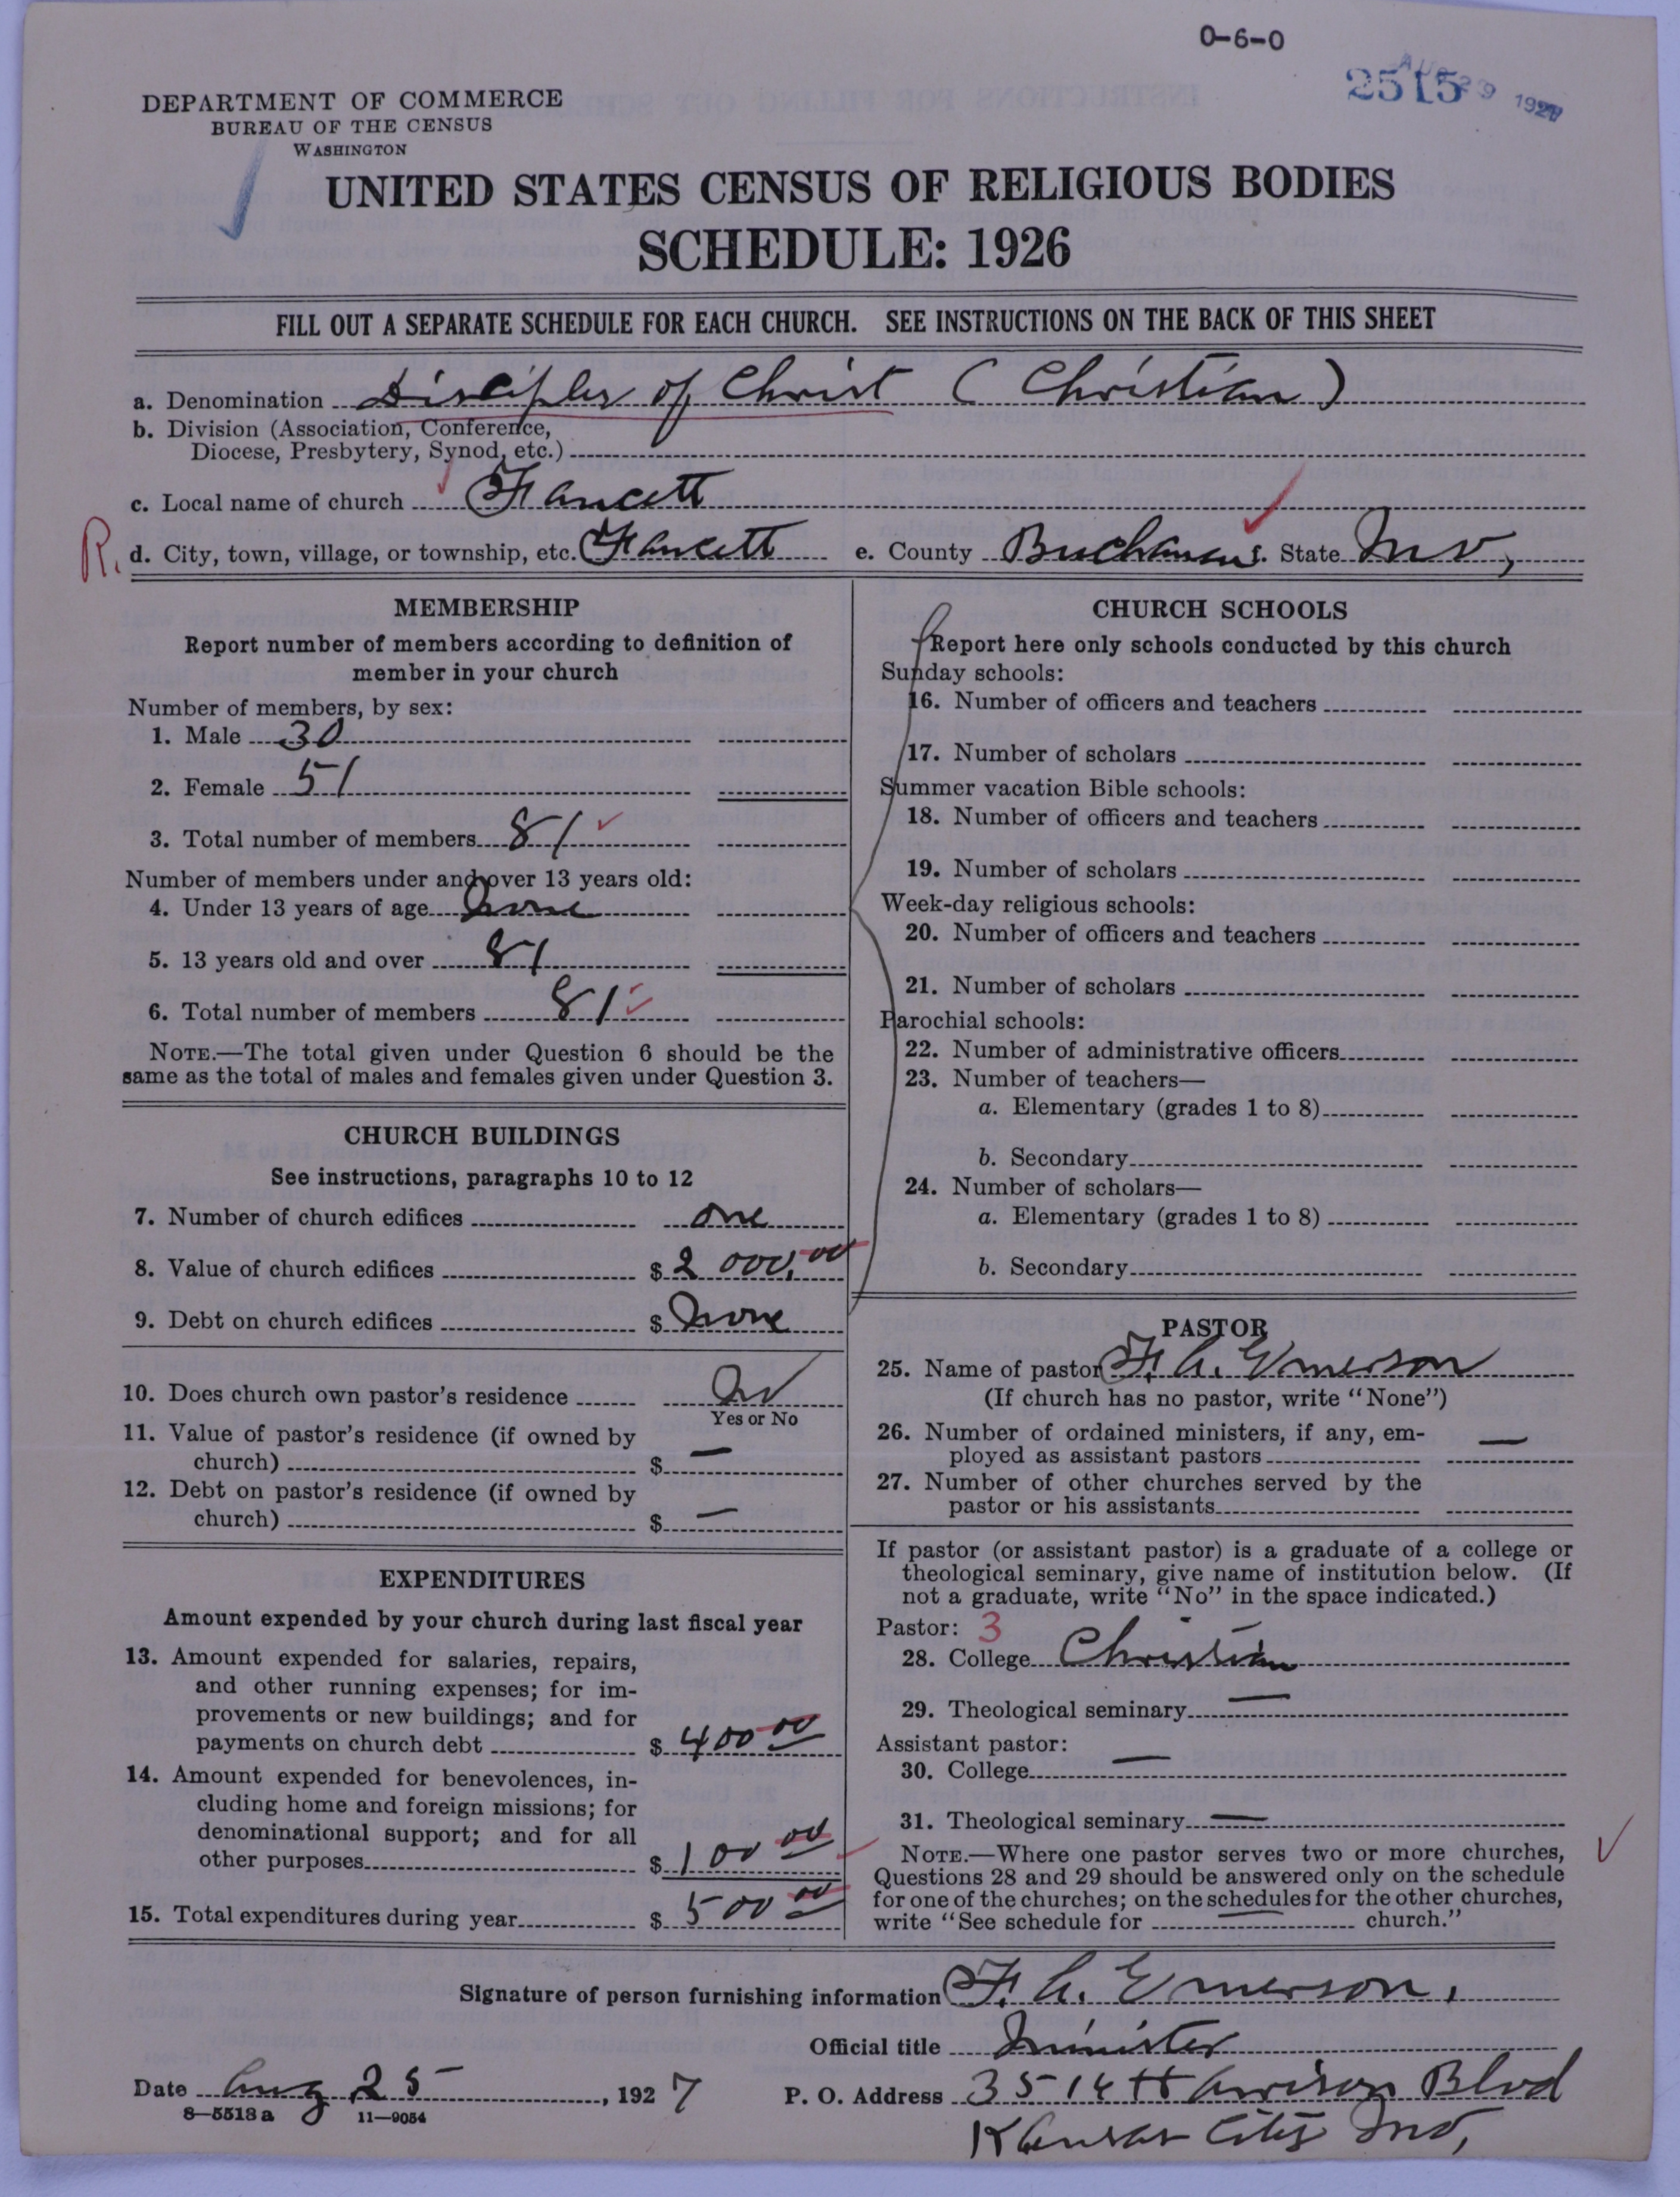 0-6-0
2515
AUG 29 1927
DEPARTMENT OF COMMERCE
BUREAU OF THE CENSUS
WASHINGTON
UNITED STATES CENSUS OF RELIGIOUS BODIES
SCHEDULE: 1926
FILL OUT A SEPARATE SCHEDULE FOR EACH CHURCH. SEE INSTRUCTIONS ON THE BACK OF THIS SHEET
a. Denomination Disciples of Christ (Christian)
b. Division (Association, Conference,
Diocese, Presbytery, Synod, etc.)
c. Local name of church Faucett
R. d. City, town, village, or township, etc. Faucett e. County Buchanan f. State Mo,
MEMBERSHIP
Report number of members according to definition of
member in your church
Number of members, by sex:
1. Male 30
2. Female 51
3. Total number of members 81
Number of members under and over 13 years old:
4. Under 13 years of age None
5. 13 years old and over 81
6. Total number of members 81
NOTE.—The total given under Question 6 should be the
same as the total of males and females given under Question 3.
CHURCH BUILDINGS
See instructions, paragraphs 10 to 12
7. Number of church edifices one
8. Value of church edifices $ 2000.00
9. Debt on church edifices $ None
10. Does church own pastor's residence No
Yes or No
11. Value of pastor's residence (if owned by
church) $ —
12. Debt on pastor's residence (if owned by
church) $ —
EXPENDITURES
Amount expended by your church during last fiscal year
13. Amount expended for salaries, repairs,
and other running expenses; for im-
provements or new buildings; and for
payments on church debt $ 400 00
14. Amount expended for benevolences, in-
cluding home and foreign missions; for
denominational support; and for all
other purposes $ 100 00
15. Total expenditures during year $ 500 00
CHURCH SCHOOLS
Report here only schools conducted by this church
Sunday schools:
16. Number of officers and teachers
17. Number of scholars
Summer vacation Bible schools:
18. Number of officers and teachers
19. Number of scholars
Week-day religious schools:
20. Number of officers and teachers
21. Number of scholars
Parochial schools:
22. Number of administrative officers
23. Number of teachers—
a. Elementary (grades 1 to 8)
b. Secondary
24. Number of scholars—
a. Elementary (grades 1 to 8)
b. Secondary
PASTOR
25. Name of pastor F. A. Emerson
(If church has no pastor, write "None")
26. Number of ordained ministers, if any, em-
ployed as assistant pastors —
27. Number of other churches served by the
pastor or his assistants
If pastor (or assistant pastor) is a graduate of a college or
theological seminary, give name of institution below. (If
not a graduate, write "No" in the space indicated.)
Pastor: 3
28. College Christian
29. Theological seminary —
Assistant pastor:
30. College —
31. Theological seminary —
NOTE.—Where one pastor serves two or more churches,
Questions 28 and 29 should be answered only on the schedule
for one of the churches; on the schedules for the other churches,
write "See schedule for — church."
Signature of person furnishing information F. A. Emerson,
Official title Minister
Date Aug 25, 1927 P. O. Address 3514 Harrison Blvd
8—5518a 11—9054
Kansas City Mo,